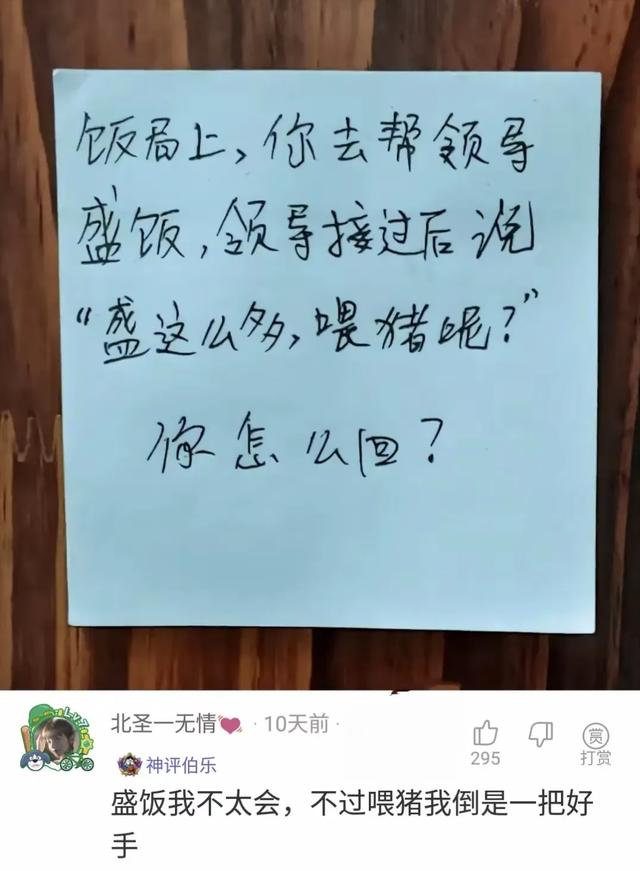 饭局上,你去帮领导
盛饭,领导接过后说
“盛这么多,喂猪呢?”
你怎么回?
北圣一无情💓 · 10天前 ·
295
打赏
赏
神评伯乐
盛饭我不太会，不过喂猪我倒是一把好
手